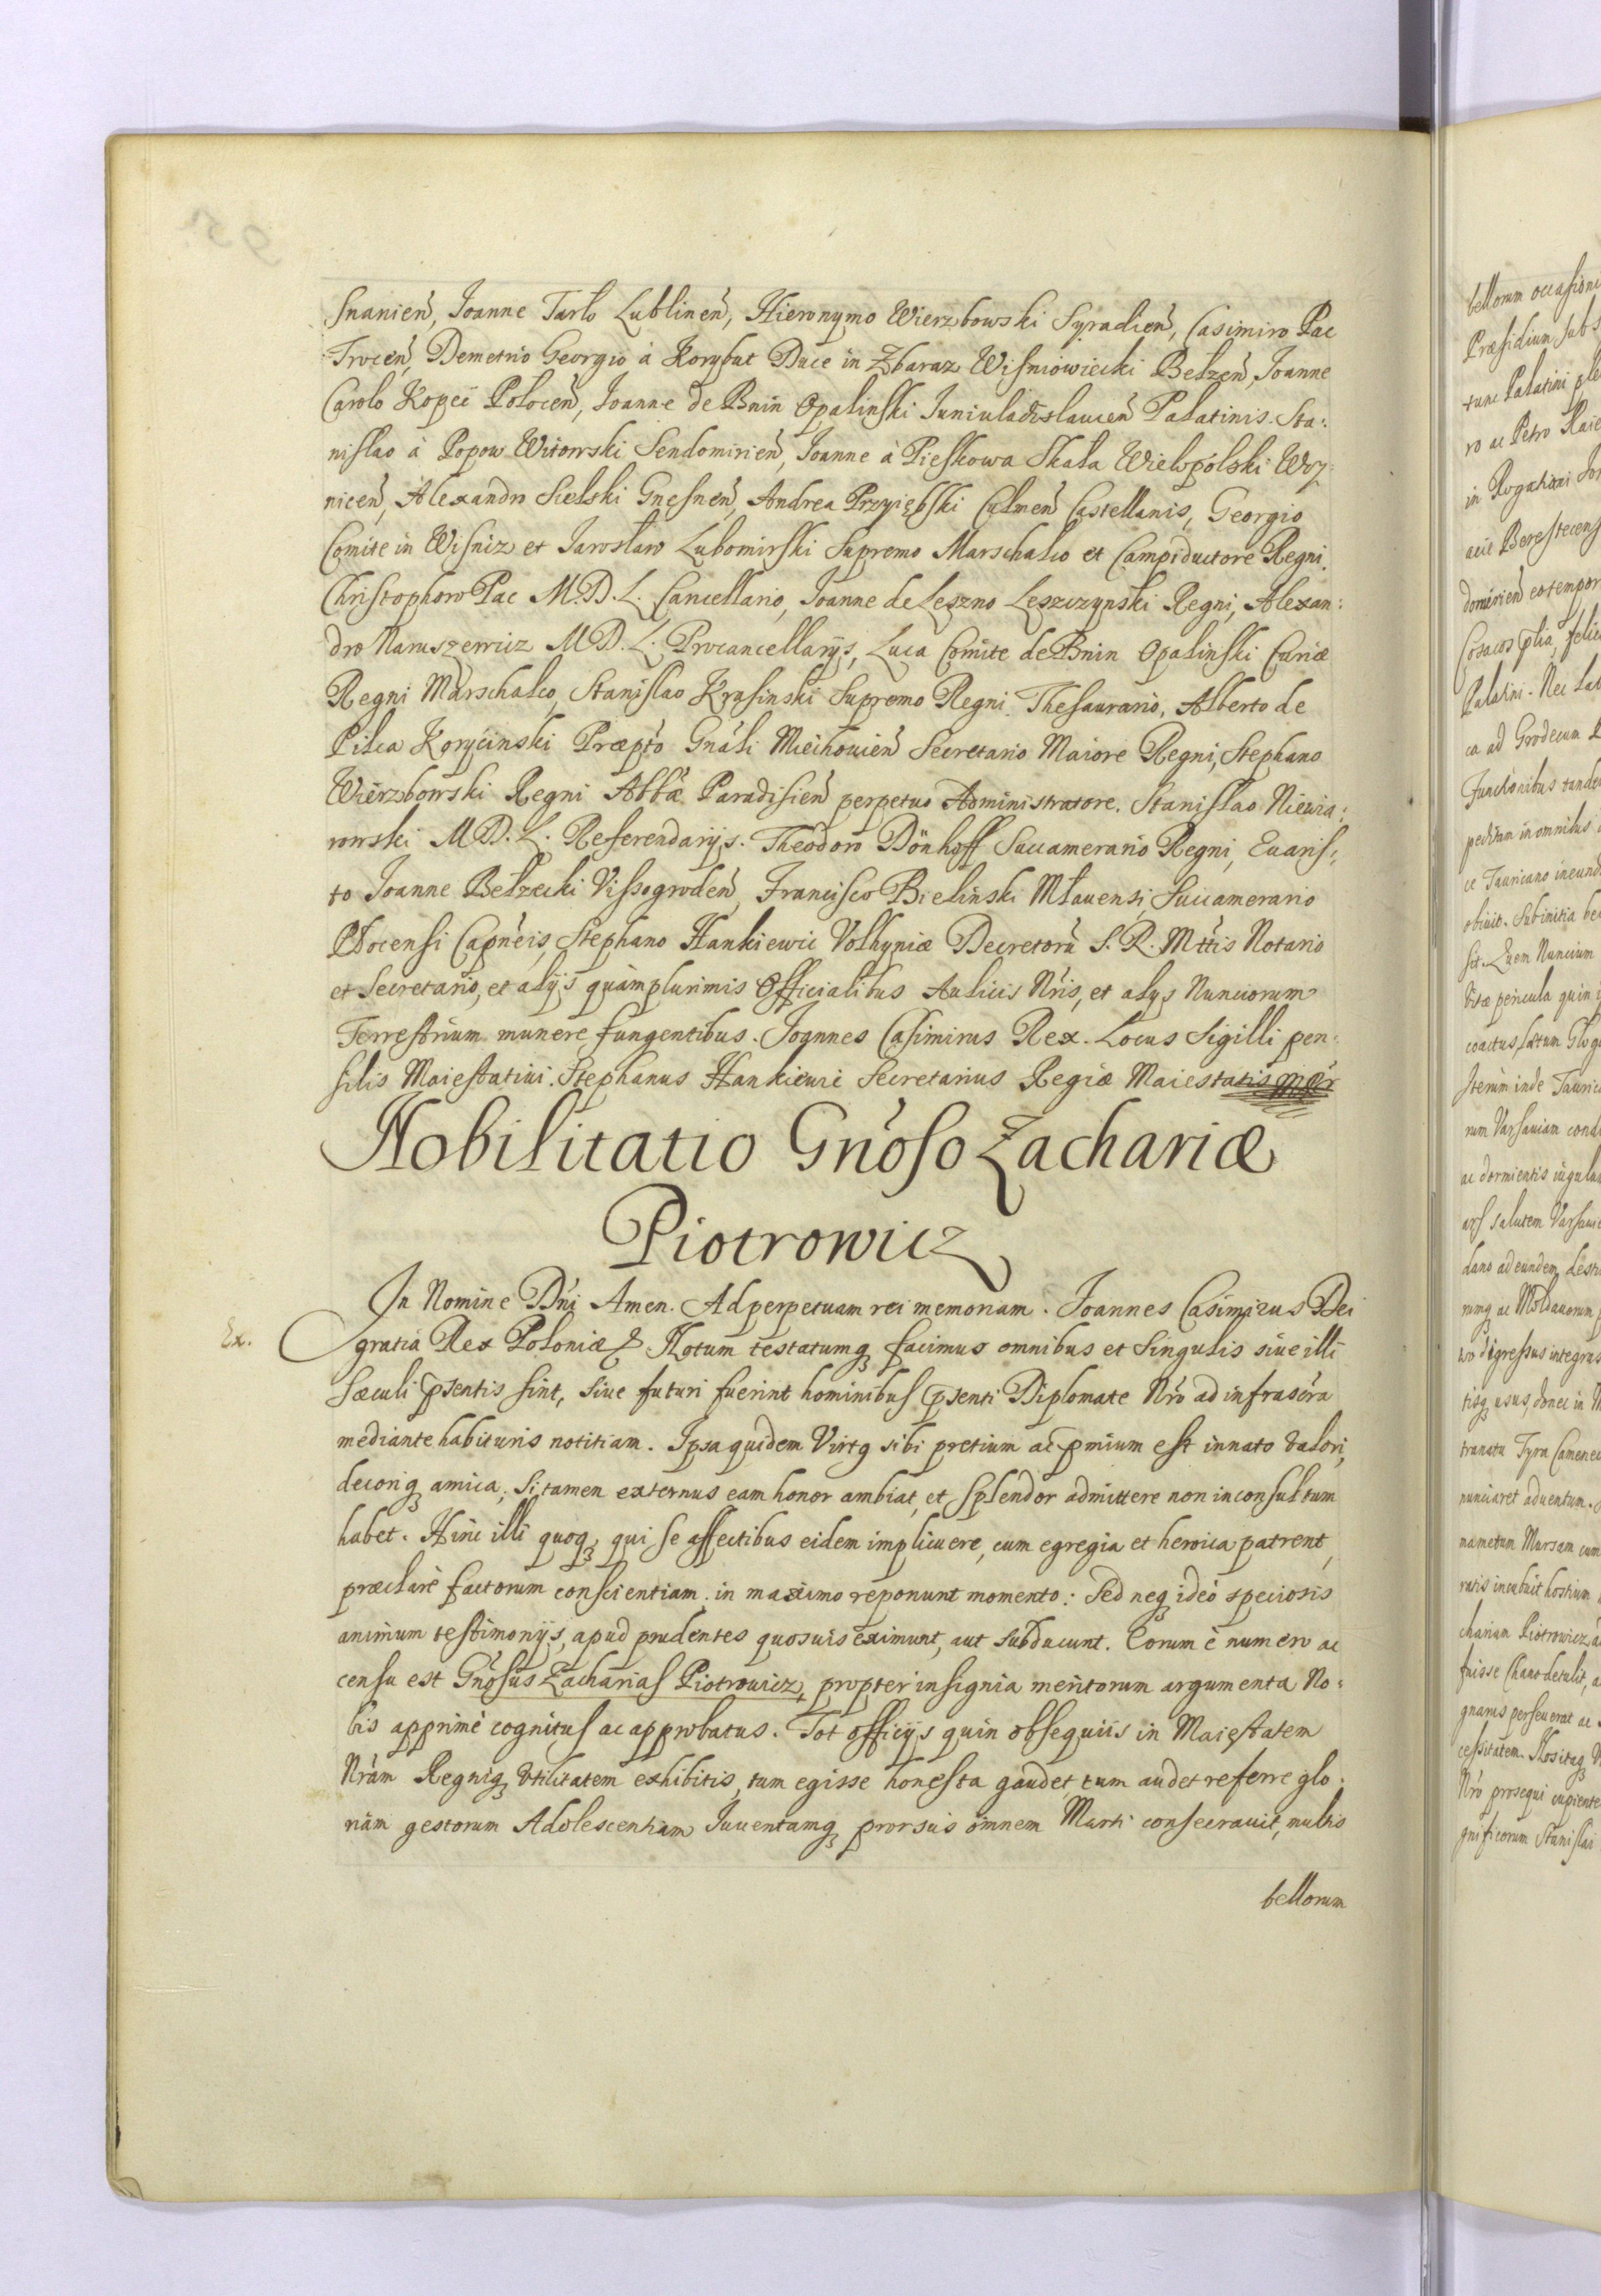 snanien̄, Joanne Tarło Lublinen̄, Hieronymo Wierzbowski Syradien̄, Casimiro Pac
Trocen̄, Demetrio Georgio à Korybut Duce in Zbaraz Wisniowiecki Bełzen̄ Joanne
Carolo Kopeć Połocen̄, Joanne de Bnin Opalinski Juniuladislauien̄ Palatinis. Sta:
nislao à Popow Witowski Sendomirien̄, Joanne à Pieskowa Skała Wielopolski Woy:
nicen̄, Alexandro Sielski Gnesnen̄, Andrea Przyiębski Culmen̄ Castellanis, Georgio
Comite in Wisnicz et Jarosław Lubomirski Supremo Marschalco et Campiductore Regni.
Christophoro Pac M.D.L. Cancellario, Joanne de Leszno Leszczynski Regni, Alexan:
dro Naruszewicz M.D.L. Procancellarijs, Luca Comite de Bnin Opalinski Curiæ
Regni Marschalco, Stanislao Krasinski Supremo Regni Thesaurario, Alberto de
Pilca Koryčinski Præpto Gnáli Miechouien̄ Secretario Maiore Regni, Stephano
Wierzbowski Regni Abbā Paradisien̄ perpetuo Administratore. Stanislao Niewia:
rowski M.D.L. Referendarijs. Theodoro Dönhoff Succamerario Regni, Euaris:
to Joanne Bełzecki Vissogroden̄, Francisco Bielinski Mławensi, Succamerario
Plocensi Capn̄eis, Stephano Hankiewic Volhyniæ Decretorū S. R. Mttis Notario
et Secretario, et alijs quàmplurimis Officialibus Aulicis Nris, et alijs Nunciorum
Terrestrium munere fungentibus. Joannes Casimirus Rex. Locus Sigilli pen:
silis Maiestatiui. Stephanus Hankiewic Secretarius Regiæ Maiestatis mpr
Nobilitatio Gnoso Zachariæ
Piotrowicz
Ex.
In Nomine Dn̄i Amen. Ad perpetuam rei memoriam. Joannes Casimirus Dei
gratia Rex Poloniæ & Notum testatumq facimus omnibus et Singulis siue illi
Sæculi p̄sentis sint, siue futuri fuerint hominibus p̄senti Diplomate Nro ad infrascra
mediante habituris notitiam. Ipsa quidem Virtꝯ sibi pretium ac p̄mium est innato valori,
decoriq amica, Si tamen externus eam honor ambiat, et Splendor admittere non inconsultum
habet. Hinc illi quoq, qui se affectibus eidem implicuere, cum egregia et heroica patrent,
præclarè factorum conscientiam in maximo reponunt momento: Sed neq ideò speciosis
animum testimonijs, apud prudentes quosuis eximunt, aut subducunt. Eorum è numero ac
censu est Gnosus Zacharias Piotrowicz, propter insignia meritorum argumenta No:
bis apprimè cognitus ac approbatus. Tot officijs quin obsequiis in Maiestatem
Nram Regniq vtilitatem exhibitis, tum egisse honesta gaudet, tum audet referre glo:
riam gestorum Adolescentiam Juuentamq prorsus omnem Marti consecrauit, multis
bellorum
bellorum occasioni
Præsidium sub
tunc Palatini
ro ac Petro
in Rogatini
acie Berestecens
domirien̄ eo tempor
Cosacos
Palatini. Nec
ca ad Grodecum
Functionibus tande
peditum in omnibus
ce Tauricano ineund
obiuit. Sub initia be
sit. Quem Nuncium
vitæ pericula quin
coactus,
Iterum inde Tauric
rum Varsauiam cond
ac dormientis iugula
ars salutem Varsaui
dano ad eundem
rumq ac Moldauorum
digressus integras
tisq usus, donec in
tranata Tyra Camenec
nunciaret aduentum.
mametum Mursam cum
ratis incubuit hostium
chariam Piotrowicz
fuisse Chano detulit, a
gnarus perseuerat ac
cessitatem. Nositaq
Nro prosequi cupiente
gnificorum Stanislai